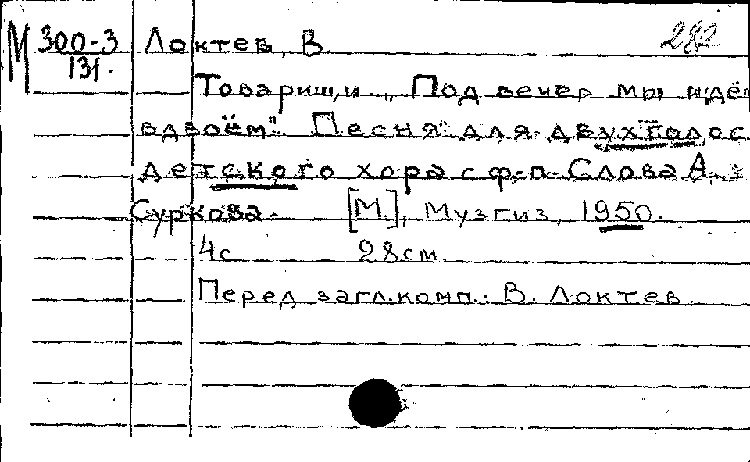 М 300-3 Локтев, В. 282
131.
Товарищи. "Под вечер мы идё
вдвоём". Песня для двухголос
детского хора с ф.-п. Слова А.
Суркова. [М.], Музгиз, 1950.
4с 28см
Перед загл. комп.: В. Локтев